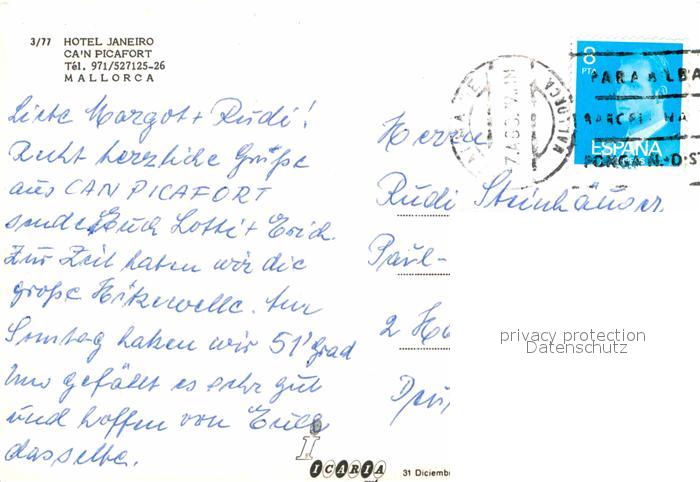 3/77 HOTEL JANEIRO
CA'N PICAFORT
Tél. 971/527125-26
MALLORCA
Liebe Margot + Rudi!
Recht herzliche Grüße
aus CAN PICAFORT
sende Euch Lotti + Erich.
Zur Zeit haben wir die
große Hitzewelle. Am
Sonntag haben wir 51 grad
Uns gefällt es sehr gut
und hoffen von Euch
dasselbe.
Herrn
Rudi Steinhäuser
Paul-
2 Ha
8
PTA
ESPAÑA
MALLORCA
PARA
BARCELONA
PONGA N.D.
privacy protection
Datenschutz
i
ICARIA
31 Diciemb